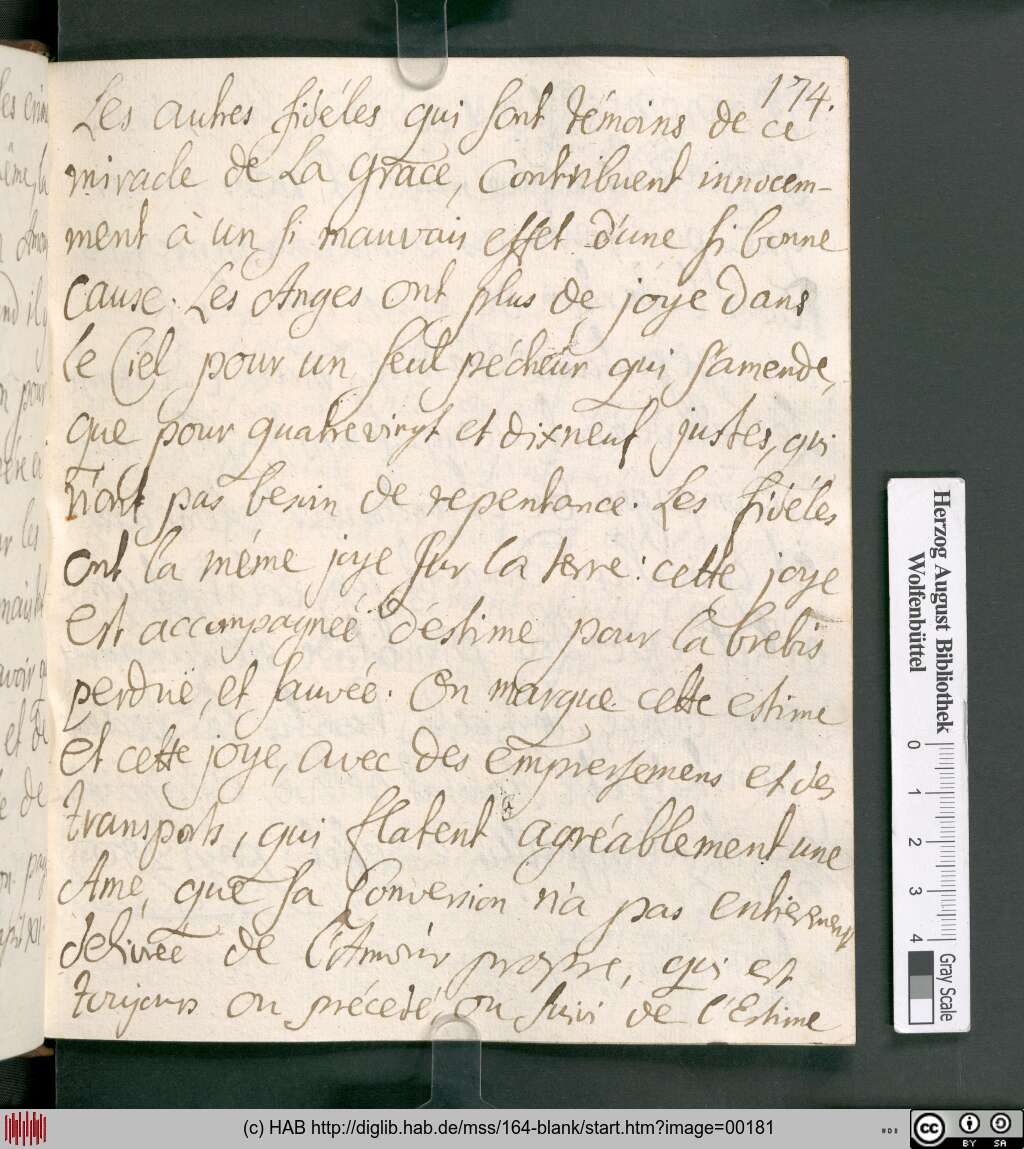 174.
Les autres fidéles qui sont témoins de ce
miracle de La Grace, contribuent innocem-
ment à un si mauvais effet d'une si bonne
cause. Les Anges ont plus de joye dans
le Ciel pour un seul pécheur qui s'amende,
que pour quatrevingt et dixneuf justes, qui
n'ont pas besoin de repentance. Les fidéles
ont la même joye sur la terre: cette joye
est accompagnée d'éstime pour la brebis
perdue, et sauvée. On marque cette estime
et cette joye, avec des empressemens et des
transports, qui flatent agréablement une
Ame, que sa Conversion n'a pas entierement
delivrée de l'Amour propre, qui est
toujours ou précédé, ou suivi de l'Estime
Herzog August Bibliothek
Wolfenbüttel
0 1 2 3 4
Gray Scale
(c) HAB http://diglib.hab.de/mss/164-blank/start.htm?image=00181
cc BY SA